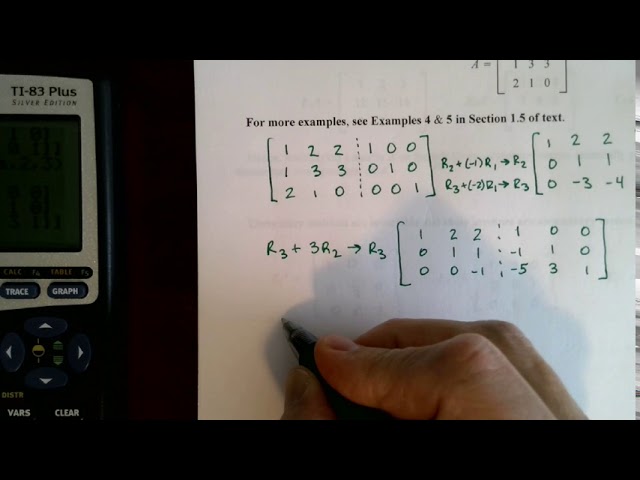 TI-83 Plus
SILVER EDITION
CALC F4 TABLE F5
TRACE GRAPH
DISTR
VARS CLEAR
A = 1 3 3
2 1 0
For more examples, see Examples 4 & 5 in Section 1.5 of text.
1 2 2 1 0 0
1 3 3 0 1 0
2 1 0 0 0 1
R2+(-1)R1→R2
R3+(-2)R1→R3
1 2 2
0 1 1
0 -3 -4
R3 + 3R2 → R3
1 2 2 1 0 0
0 1 1 -1 1 0
0 0 -1 -5 3 1